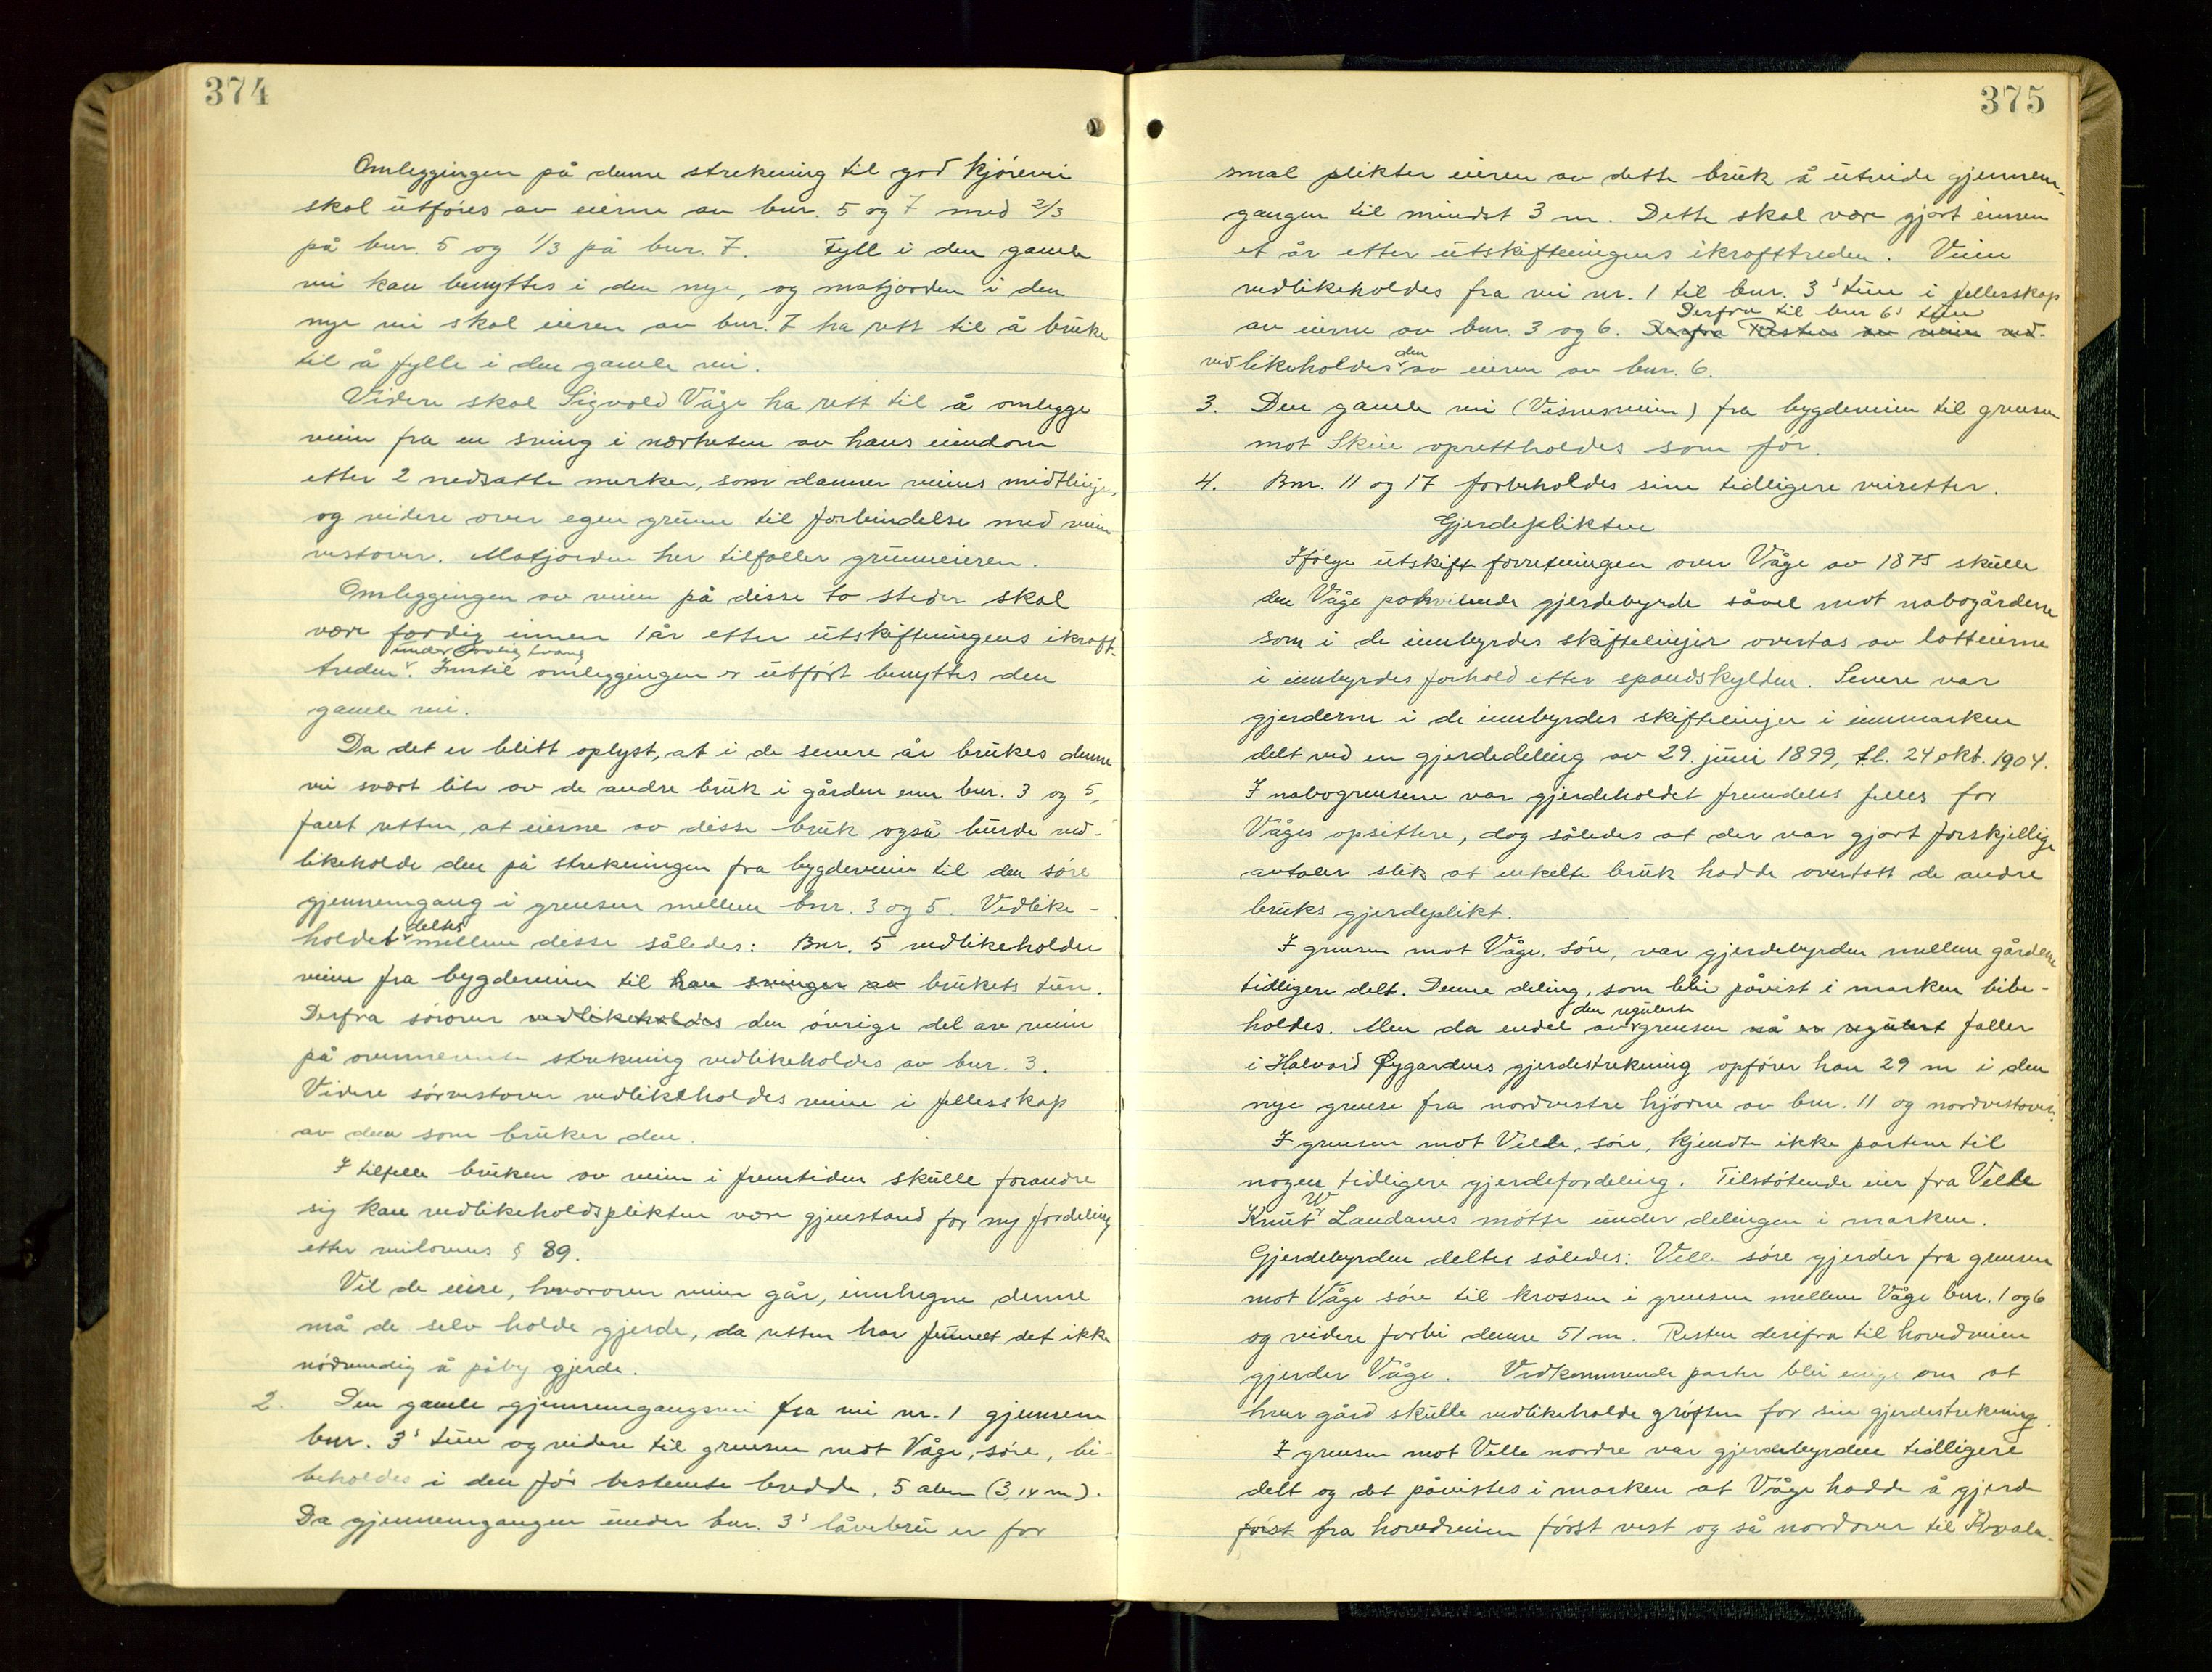 374
Omleggingen på denne strekning til god kjörevei
skal utföres av eierne av bnr. 5 og 7 med 2/3
på bnr. 5 og 1/3 på bnr. 7. Fyll i den gamle
vei kan benyttes i den nye, og matjorden i den
nye vei skal eieren av bnr. 7 ha rett til å bruke
til å fylle i den gamle vei.
Videre skal Sigvald Våge ha rett til å omlegge
veien fra en sving i nærheten av hans eiendom
etter 2 nedsatte merker, som danner veiens midtlinje,
og videre over egen grunn til forbindelse med veien
vestover. Matjorden her tilfaller grunneieren.
Omleggingen av veien på disse to steder skal
være ferdig innen 1 år efter utskiftningens ikraft-
under lovlig tvang
treden. Inntil omleggingen er utfört benyttes den
gamle vei.
Da det er blitt oplyst, at i de senere år brukes denne
vei svært lite av de andre bruk i gården enn bnr. 3 og 5,
fant retten, at eierne av disse bruk også burde ved-
likeholde den på strekningen fra bygdeveien til den söre
gjennemgang i grensen mellem bnr. 3 og 5. Vedlike-
deles
holdet mellem disse således: Bnr. 5 vedlikeholder
veien fra bygdeveien til han svinger av brukets tun.
Derfra sörover vedlikeholdes den övrige del av veien
på ovennevnte strekning vedlikeholdes av bnr. 3.
Videre sörvestover vedlikeholdes veien i fellesskap
av dem som bruker den.
I tilfelle bruken av veien i fremtiden skulle forandre
sig kan vedlikeholdsplikten være gjenstand for ny fordeling
etter veilovens § 89.
Vil de eiere, hvorover veien går, innhegne denne
må de selv holde gjerde, da retten har funnet det ikke
nödvendig å påby gjerde.
2. Den gamle gjennemgangsvei fra vei nr. 1 gjennem
bnr. 3's tun og videre til grensen mot Våge, söre, bi-
beholdes i den för bestemte bredde, 5 alen (3,14 m).
Da gjennemgangen under bnr. 3's låvebru er for
375
smal plikter eieren av dette bruk å utvide gjennem-
gangen til mindst 3 m. Dette skal være gjort innen
et år etter utskiftningens ikrafttreden. Veien
vedlikeholdes fra vei nr. 1 til bnr. 3's tun i fellesskap
Derfra til bnr 6's tun
av eierne av bnr. 3 og 6. Derfra Resten av veien ved-
den
vedlikeholdes av eieren av bnr. 6.
3. Den gamle vei (Visnesveien) fra bygdeveien til grensen
mot Skeie oprettholdes som för.
4. Bnr. 11 og 17 forbeholdes sine tidligere veiretter.
Gjerdeplikten
Ifölge utskift. forretningen over Våge av 1875 skulle
den Våge påhvilende gjerdebyrde såvel mot nabogårdene
som i de innbyrdes skiftelinjer overtas av lotteierne
i innbyrdes forhold etter spandskylden. Senere var
gjerderne i de innbyrdes skiftelinjer i innmarken
delt ved en gjerdedeling av 29. juni 1899, tl. 24 okt. 1904.
I nabogrensene var gjerdeholdet fremdeles felles for
Våges opsittere, dog således at der var gjort forskjellige
avtaler slik at enkelte bruk hadde overtatt de andre
bruks gjerdeplikt.
I grensen mot Våge, söre, var gjerdebyrden mellem gårdene
tidligere delt. Denne deling, som blei påvist i marken bibe-
den regulerte
holdes. Men da endel av grensen nå er regulert faller
i Halvard Øygardens gjerdestrekning opförer han 29 m i den
nye grense fra nordvestre hjörne av bnr. 11 og nordvestover.
I grensen mot Velle, söre, kjendte ikke partene til
nogen tidligere gjerdefordeling. Tilstötende eier fra Velle
W
Knut Landanes mötte under delingen i marken.
Gjerdebyrden deltes således: Velle söre gjerder fra grensen
mot Våge söre til krossen i grensen mellem Våge bnr. 1 og 6
og videre forbi denne 51 m. Resten derifra til hovedveien
gjerder Våge. Vedkommende parter blei enige om at
hver gård skulle vedlikeholde gröften for sin gjerdestrekning.
I grensen mot Velle nordre var gjerdebyrden tidligere
delt og det påvistes i marken at Våge hadde å gjerde
först fra hovedveien först vest og så nordover til Kvala-